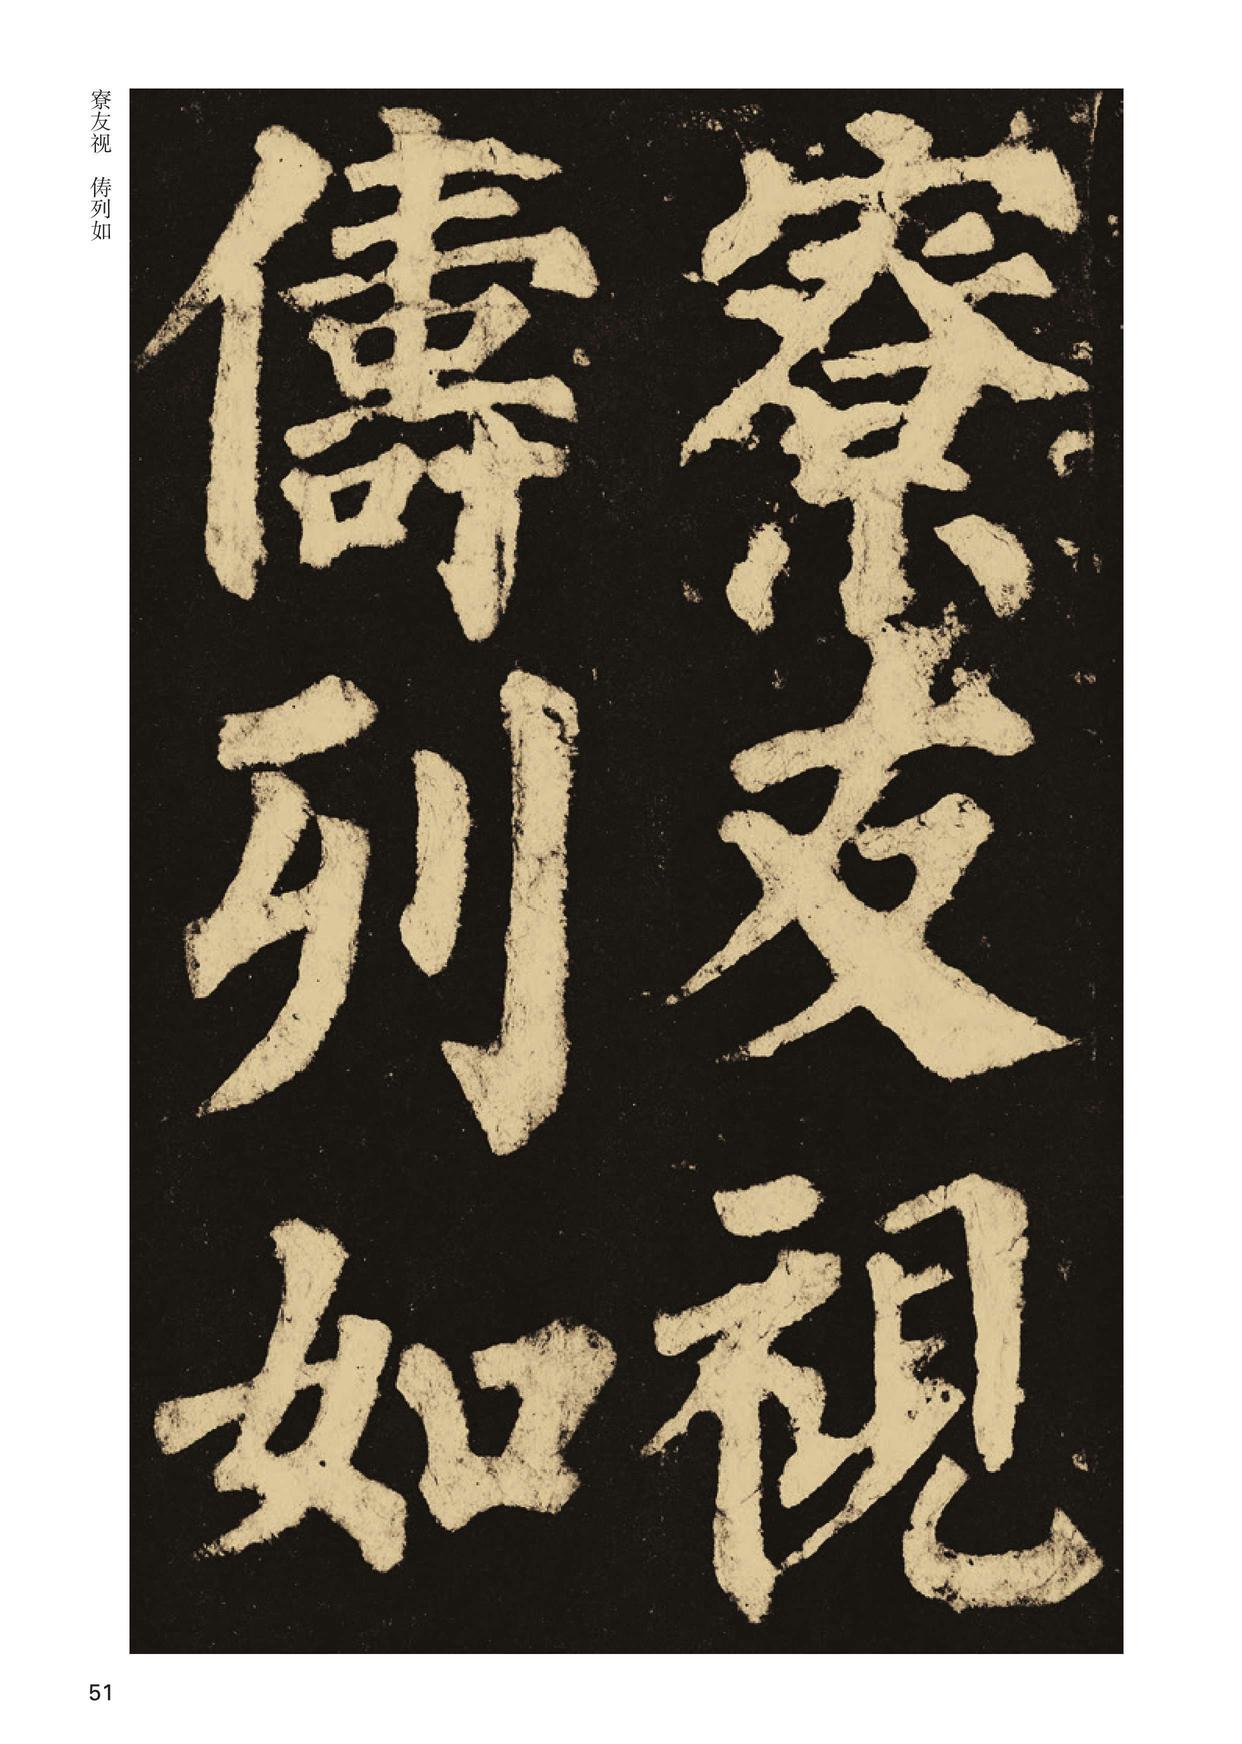 寮友視
儔列如
寮友视　俦列如
51